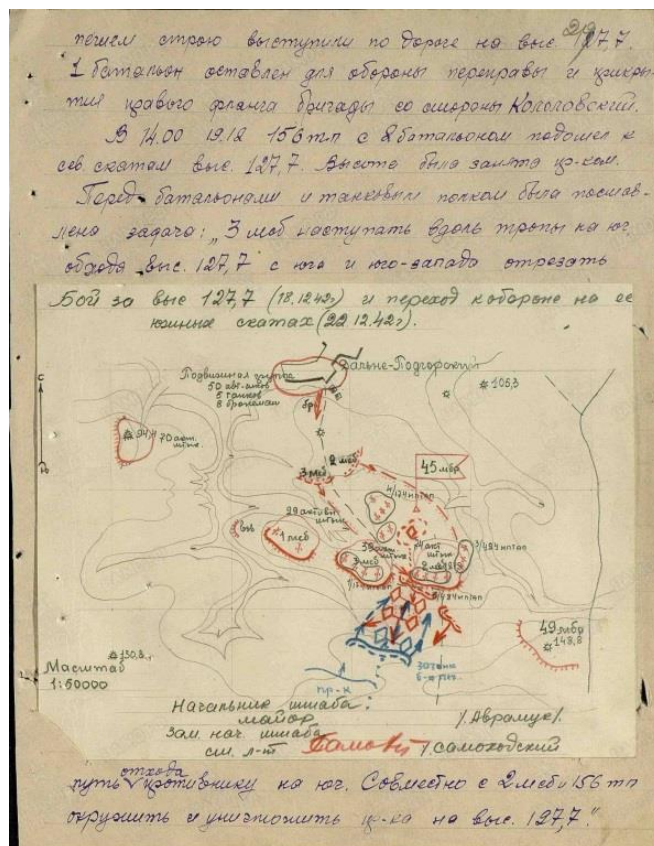 29
пешем строю выступили по дороге на выс. 127,7.
1 батальон оставлен для обороны переправы и прикры-
тия правого фланга бригады со стороны
В 14.00 19.12 156 тп с 2 батальоном подошел к
сев. скатам выс. 127,7. Высота была занята пр-ком.
Перед батальонами и танковым полком была постав-
лена задача: „3 мсб наступать вдоль тропы на юг,
обходя выс. 127,7 с юга и юго-запада отрезать
Бой за выс 127,7 (18.12.42г) и переход к обороне на ее
южных скатах (22.12.42г).
Дальне-Подгорский
Подвижная группа
50 авт-иков
5 танков
8 бронемаш
105,3
С
94,4
70 акт.
штык.
2 мсб
3 мсб
45 мбр
4/124 иптап
29 активн.
штык
1 мсб
3/484 иптап
3 мсб
2 мсб
49 мбр
148,8
130,8
Масштаб
1:50000
30 танк
пр-к
Начальник штаба:
майор
/. Аврамук/.
Зам. нач. штаба
ст. л-т
/. Самоходский
путь отхода противнику на юг. Совместно с 2 мсб и 156 тп
окружить и уничтожить пр-ка на выс. 127,7."